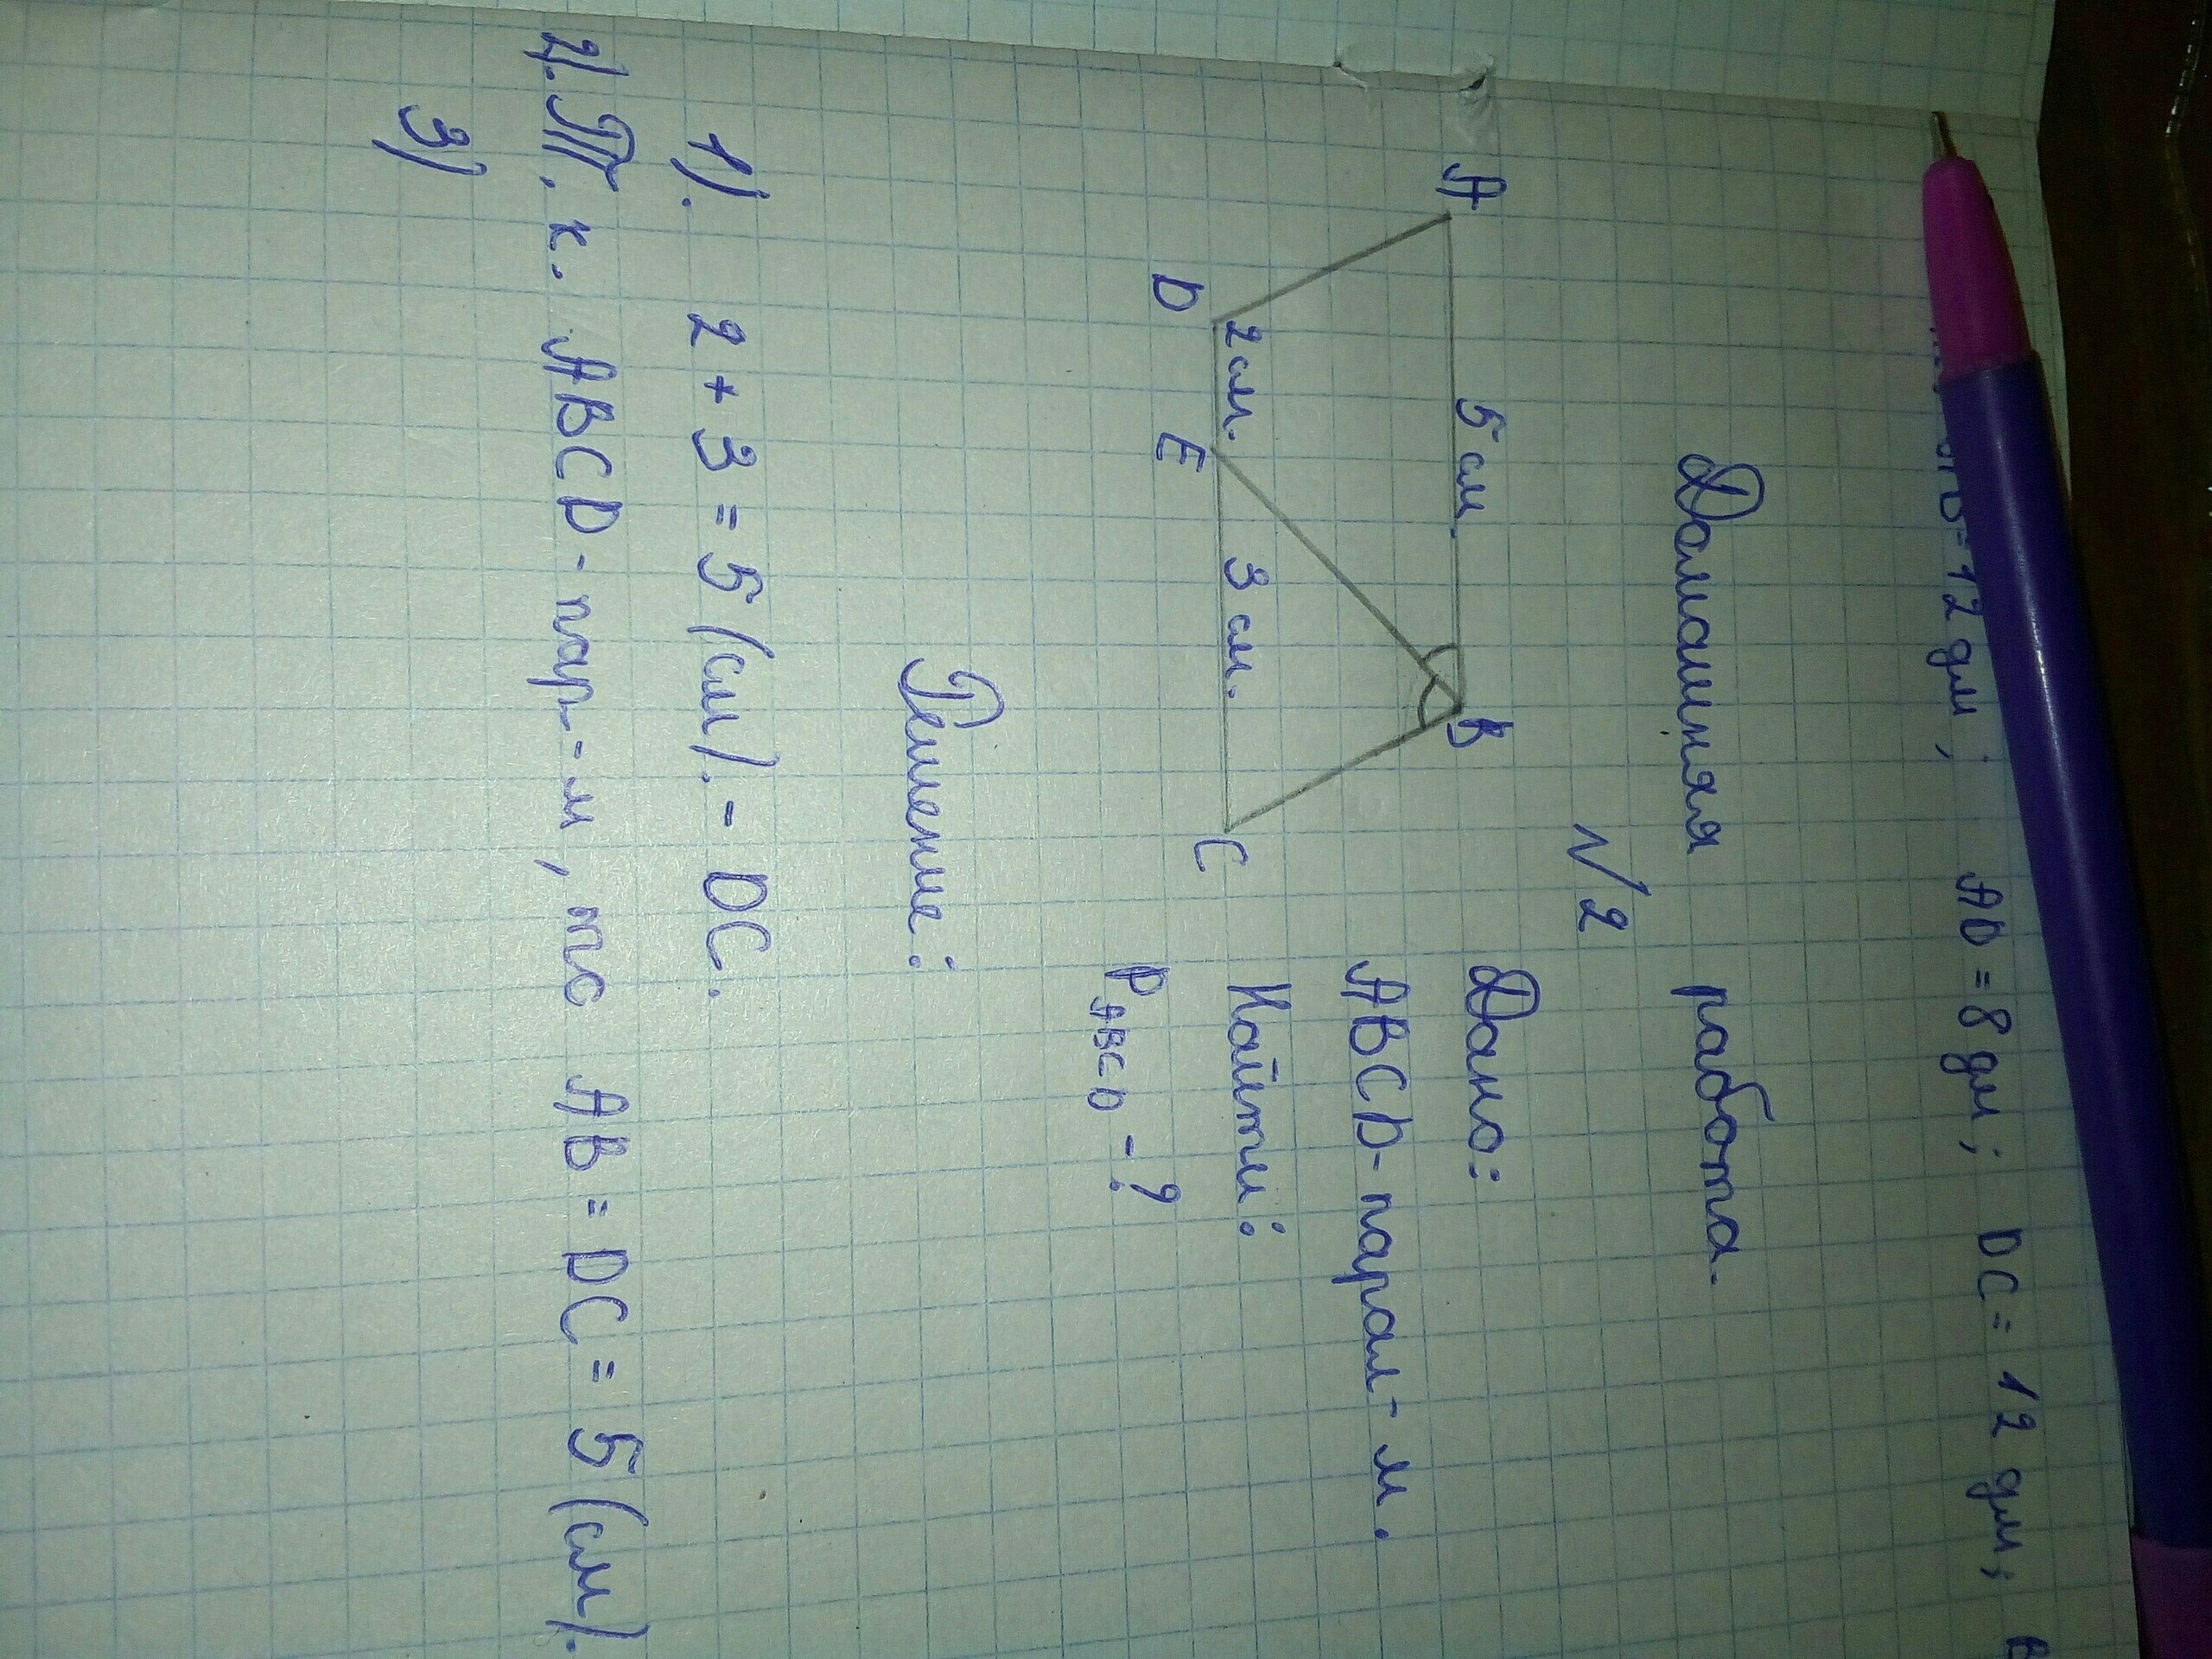 =12 дм; AD = 8 дм; DC = 12 дм;
Домашняя работа.
№2
A 5 см B
D 2 см. E 3 см. C
Дано:
ABCD-парал-м.
Найти:
PABCD -?
Решение:
1). 2 + 3 = 5 (см). - DC.
2). Т. к. ABCD - пар-м, то AB = DC = 5 (см).
3)